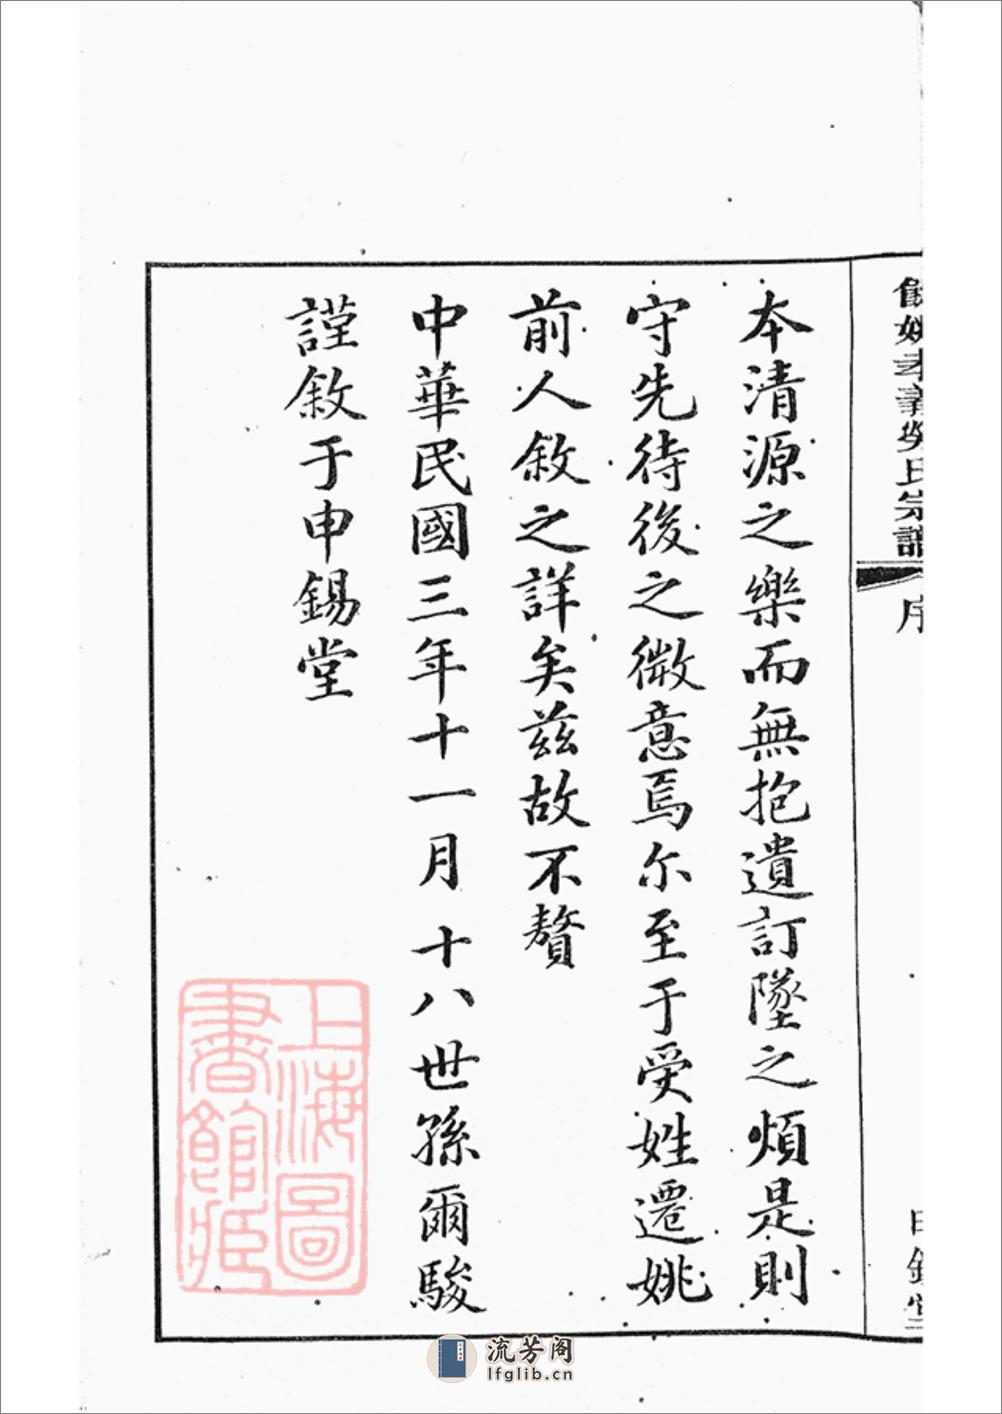 餘姚孝義勞氏宗譜 序 申錫堂
本清源之樂而無抱遺訂墜之煩是則
守先待後之微意焉尔至于受姓遷姚
前人敘之詳矣茲故不贅
中華民國三年十一月十八世孫爾駿
謹敘于申錫堂
上海圖書館藏
流芳阁
lfglib.cn